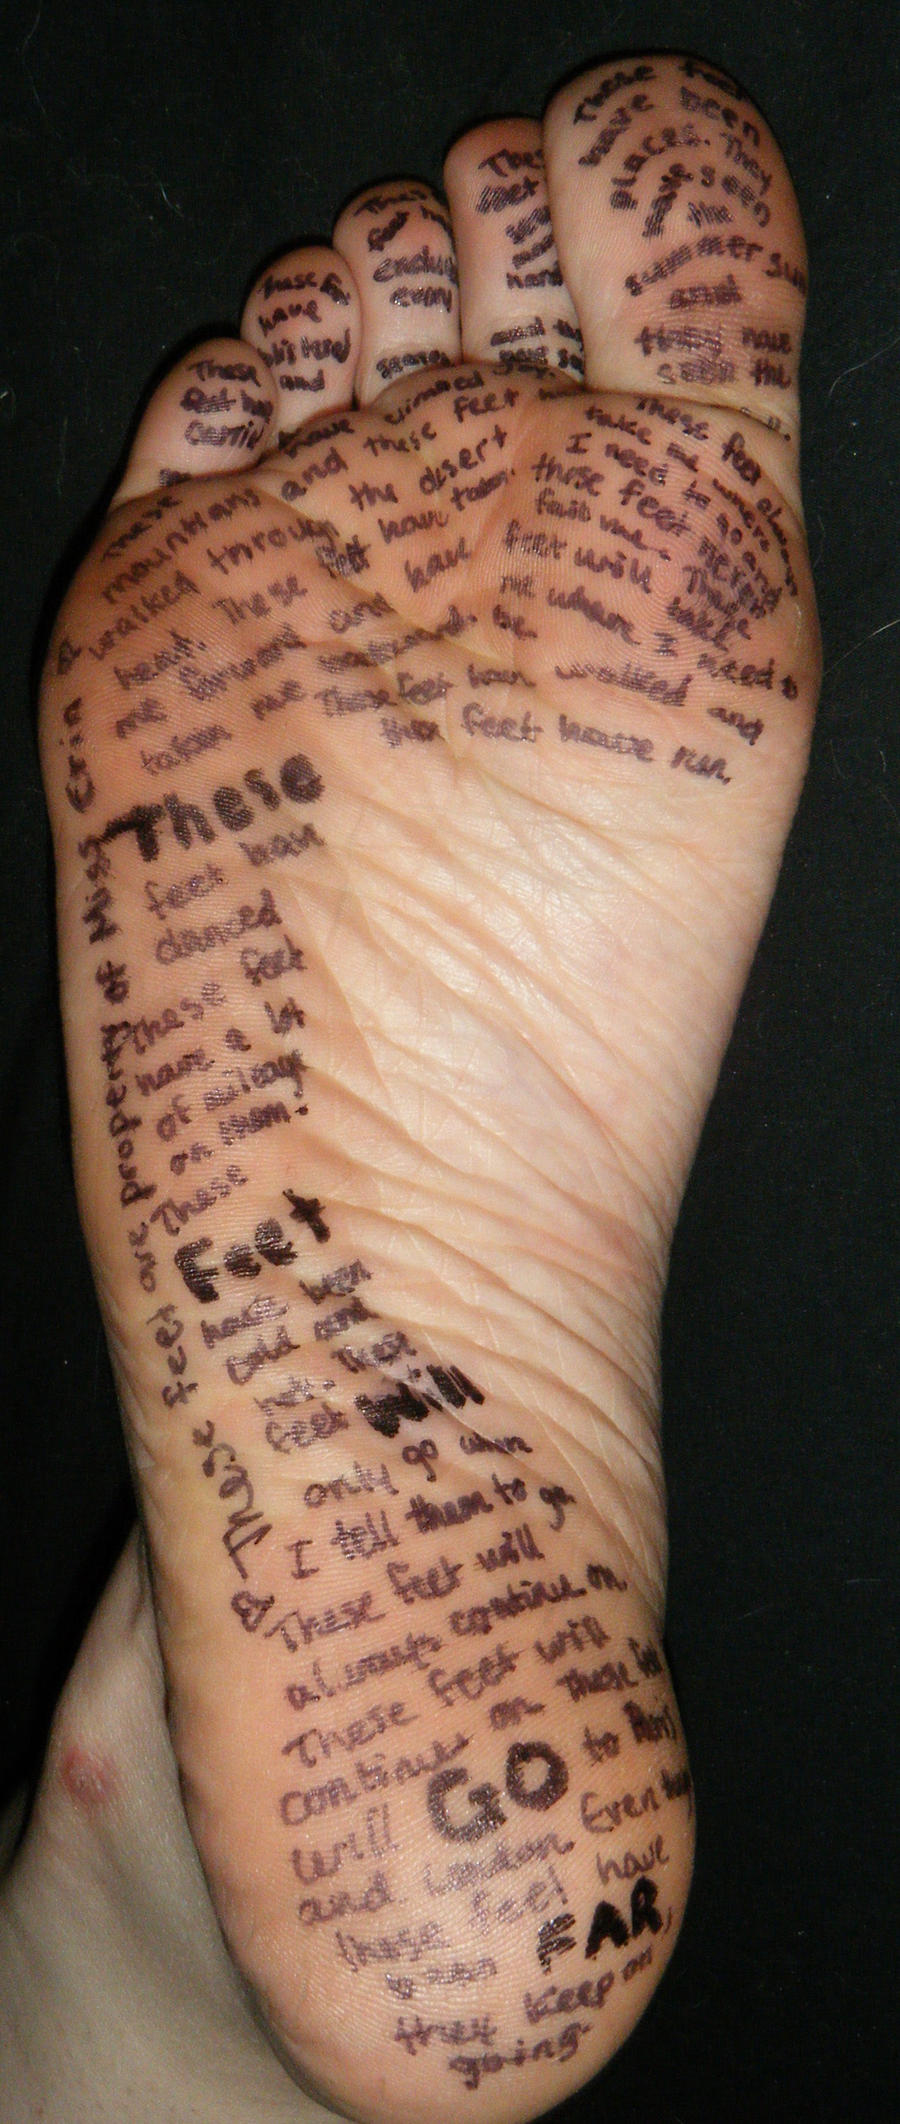 These feet
have been
places. They
have seen
the
summer sun
and
they have
seen the
These
feet
hand
and
These
feet
every
These
have
blistered
and
These
feet
These have climbed
mountains and these feet
walked through the desert
heat. These feet have taken
me forward and have
taken me backward.
These feet always
take me where
I need to go and
these feet never
fail me. These
feet will take
me where I need to
be.
These feet have walked and
these feet have run.
These
feet have
danced
These feet
have a lot
of mileage
on them!
These
Feet
have been
cold and
hot. These
feet Will
only go when
I tell them to go
These feet will
always continue on
These feet will
continue on These
will GO to Paris
and London Even
these feet have
been FAR,
they keep on
going.
These feet are property of Miss Erin